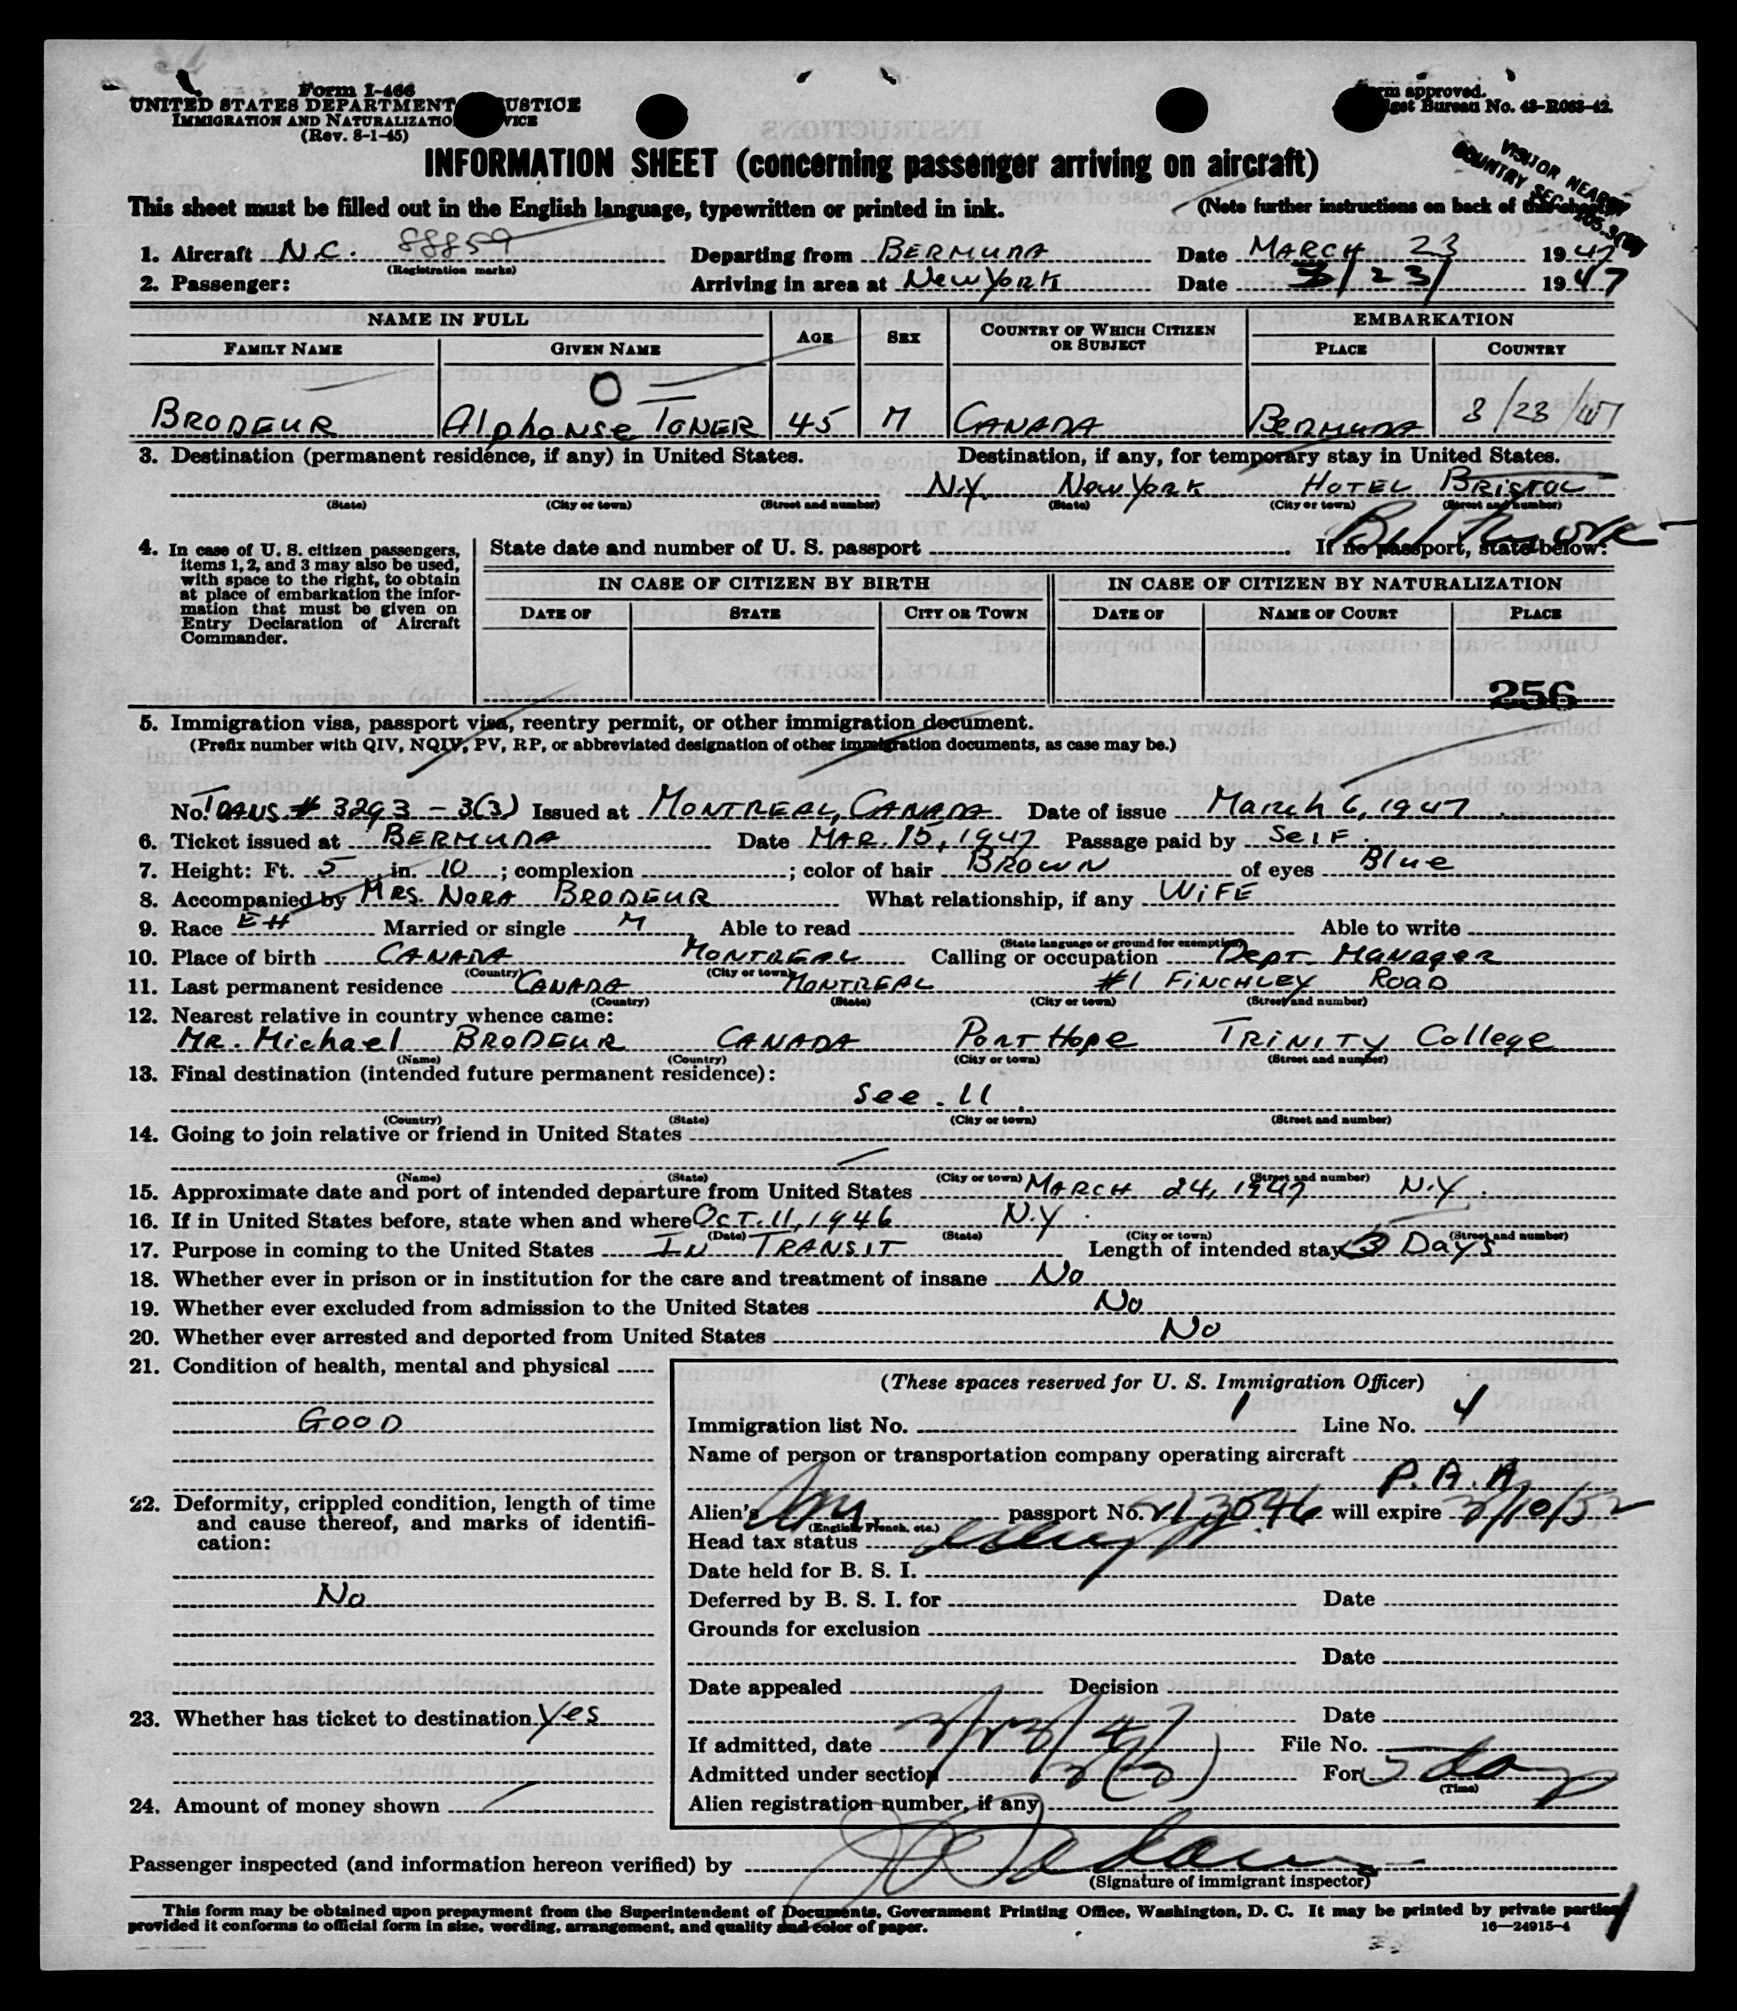 Form I-466
UNITED STATES DEPARTMENT JUSTICE
IMMIGRATION AND NATURALIZATION SERVICE
(Rev. 8-1-45)
Form approved.
Budget Bureau No. 43-R063-42.
INFORMATION SHEET (concerning passenger arriving on aircraft)
VISITOR NEARBY
COUNTRY SEC.
This sheet must be filled out in the English language, typewritten or printed in ink. (Note further instructions on back of this sheet)
1. Aircraft N.C. 88859 Departing from BERMUDA Date MARCH 23 1947
(Registration marks)
2. Passenger: Arriving in area at New York Date 3/23/ 1947
NAME IN FULL AGE SEX COUNTRY OF WHICH CITIZEN OR SUBJECT EMBARKATION
FAMILY NAME GIVEN NAME PLACE COUNTRY
BRODEUR Alphonse TONER 45 M CANADA BERMUDA 3/23/47
3. Destination (permanent residence, if any) in United States. Destination, if any, for temporary stay in United States.
N.Y. New York HOTEL BRISTOL
(State) (City or town) (Street and number) (State) (City or town) (Street and number)
4. In case of U. S. citizen passengers, items 1, 2, and 3 may also be used, with space to the right, to obtain at place of embarkation the information that must be given on Entry Declaration of Aircraft Commander.
State date and number of U. S. passport If no passport, state below:
IN CASE OF CITIZEN BY BIRTH IN CASE OF CITIZEN BY NATURALIZATION
DATE OF STATE CITY OR TOWN DATE OF NAME OF COURT PLACE
256
5. Immigration visa, passport visa, reentry permit, or other immigration document.
(Prefix number with QIV, NQIV, PV, RP, or abbreviated designation of other immigration documents, as case may be.)
No. TRANS. # 3293-3(3) Issued at MONTREAL, CANADA Date of issue March 6, 1947
6. Ticket issued at BERMUDA Date MAR. 15, 1947 Passage paid by SELF.
7. Height: Ft. 5 in. 10; complexion ; color of hair BROWN of eyes Blue
8. Accompanied by MRS. NORA BRODEUR What relationship, if any WIFE
9. Race EH Married or single M Able to read Able to write
(State language or ground for exemption)
10. Place of birth CANADA MONTREAL Calling or occupation DEPT. MANAGER
(Country) (City or town)
11. Last permanent residence CANADA MONTREAL #1 FINCHLEY ROAD
(Country) (State) (City or town) (Street and number)
12. Nearest relative in country whence came:
MR. Michael BRODEUR CANADA PORT Hope TRINITY College
(Name) (Country) (City or town) (Street and number)
13. Final destination (intended future permanent residence):
See. 11
(Country) (State) (City or town) (Street and number)
14. Going to join relative or friend in United States
(Name) (State) (City or town) (Street and number)
15. Approximate date and port of intended departure from United States MARCH 24, 1947 N.Y.
16. If in United States before, state when and where OCT. 11, 1946 N.Y.
(Date) (State) (City or town) (Street and number)
17. Purpose in coming to the United States IN TRANSIT Length of intended stay 3 Days
18. Whether ever in prison or in institution for the care and treatment of insane No
19. Whether ever excluded from admission to the United States No
20. Whether ever arrested and deported from United States No
21. Condition of health, mental and physical
GOOD
22. Deformity, crippled condition, length of time and cause thereof, and marks of identification:
No
23. Whether has ticket to destination Yes
24. Amount of money shown
(These spaces reserved for U. S. Immigration Officer)
Immigration list No. 1 Line No. 4
Name of person or transportation company operating aircraft
P. A. A.
Alien's passport No. will expire 3/10/52
(English, French, etc.)
Head tax status
Date held for B. S. I.
Deferred by B. S. I. for Date
Grounds for exclusion
Date
Date appealed Decision
Date
If admitted, date 3/23/47 File No.
Admitted under section 3(3) For
(Time)
Alien registration number, if any
Passenger inspected (and information hereon verified) by
(Signature of immigrant inspector)
This form may be obtained upon prepayment from the Superintendent of Documents, Government Printing Office, Washington, D. C. It may be printed by private parties
provided it conforms to official form in size, wording, arrangement, and quality and color of paper. 16—24915-4